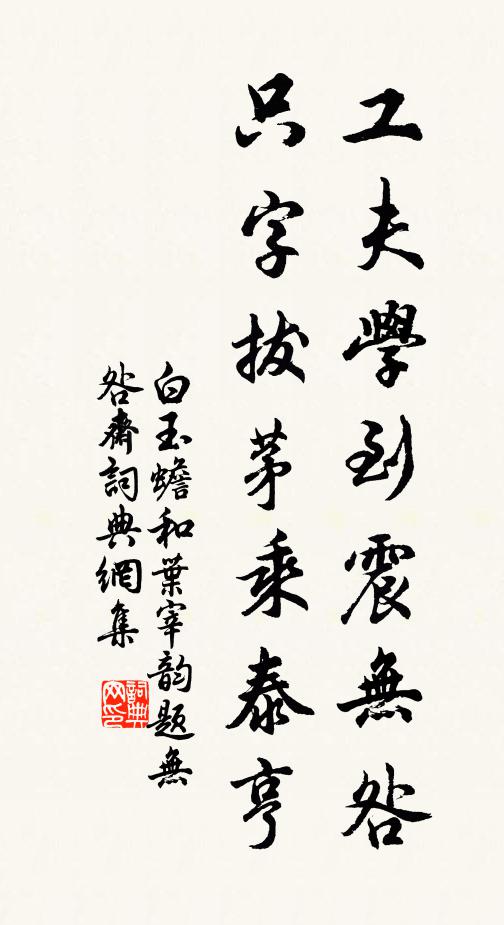 工夫學到震無咎
只字拔茅乘泰亨
白玉蟾和葉宰韵题無
咎齋詞典網集
詞典网印